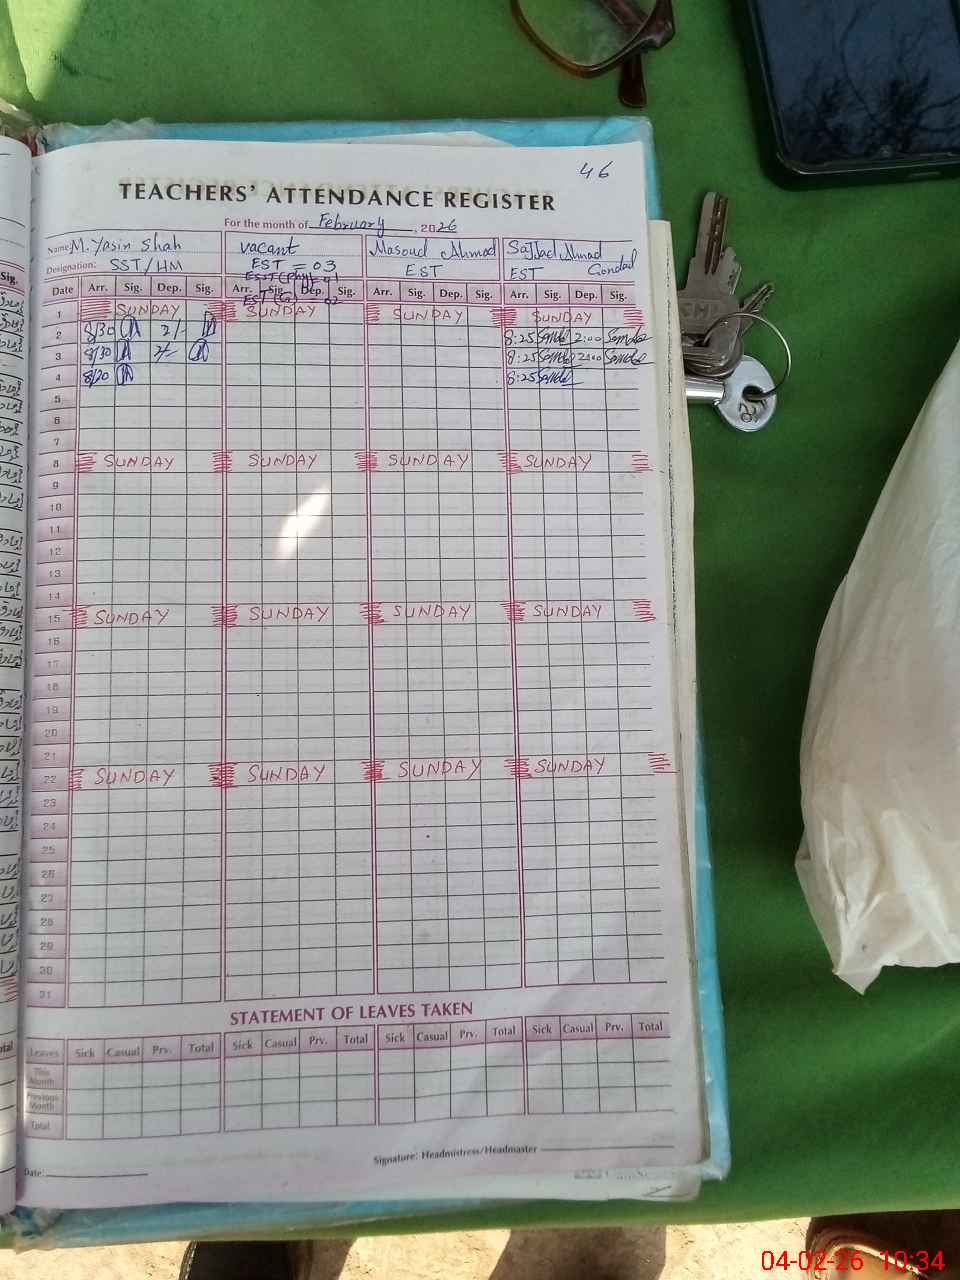 46
TEACHERS' ATTENDANCE REGISTER
For the month of February, 2026
Name M. Yasin Shah vacant Masoud Ahmad Sajjad Ahmad
Designation: SST/HM EST = 03 EST EST Gondal
Date Arr. Sig. Dep. Sig. Arr. Sig. Dep. Sig. Arr. Sig. Dep. Sig. Arr. Sig. Dep. Sig.
1 SUNDAY SUNDAY SUNDAY SUNDAY
2 8/30 2/- 8:25 2:00
3 8/30 2/- 8:25 2:00
4 8/20 8:25
5
6
7
8 SUNDAY SUNDAY SUNDAY SUNDAY
9
10
11
12
13
14
15 SUNDAY SUNDAY SUNDAY SUNDAY
16
17
18
19
20
21
22 SUNDAY SUNDAY SUNDAY SUNDAY
23
24
25
26
27
28
29
30
31
STATEMENT OF LEAVES TAKEN
Leaves Sick Casual Prv. Total Sick Casual Prv. Total Sick Casual Prv. Total Sick Casual Prv. Total
This Month
Previous Month
Total
Signature: Headmistress/Headmaster
Date:
04-02-26 10:34